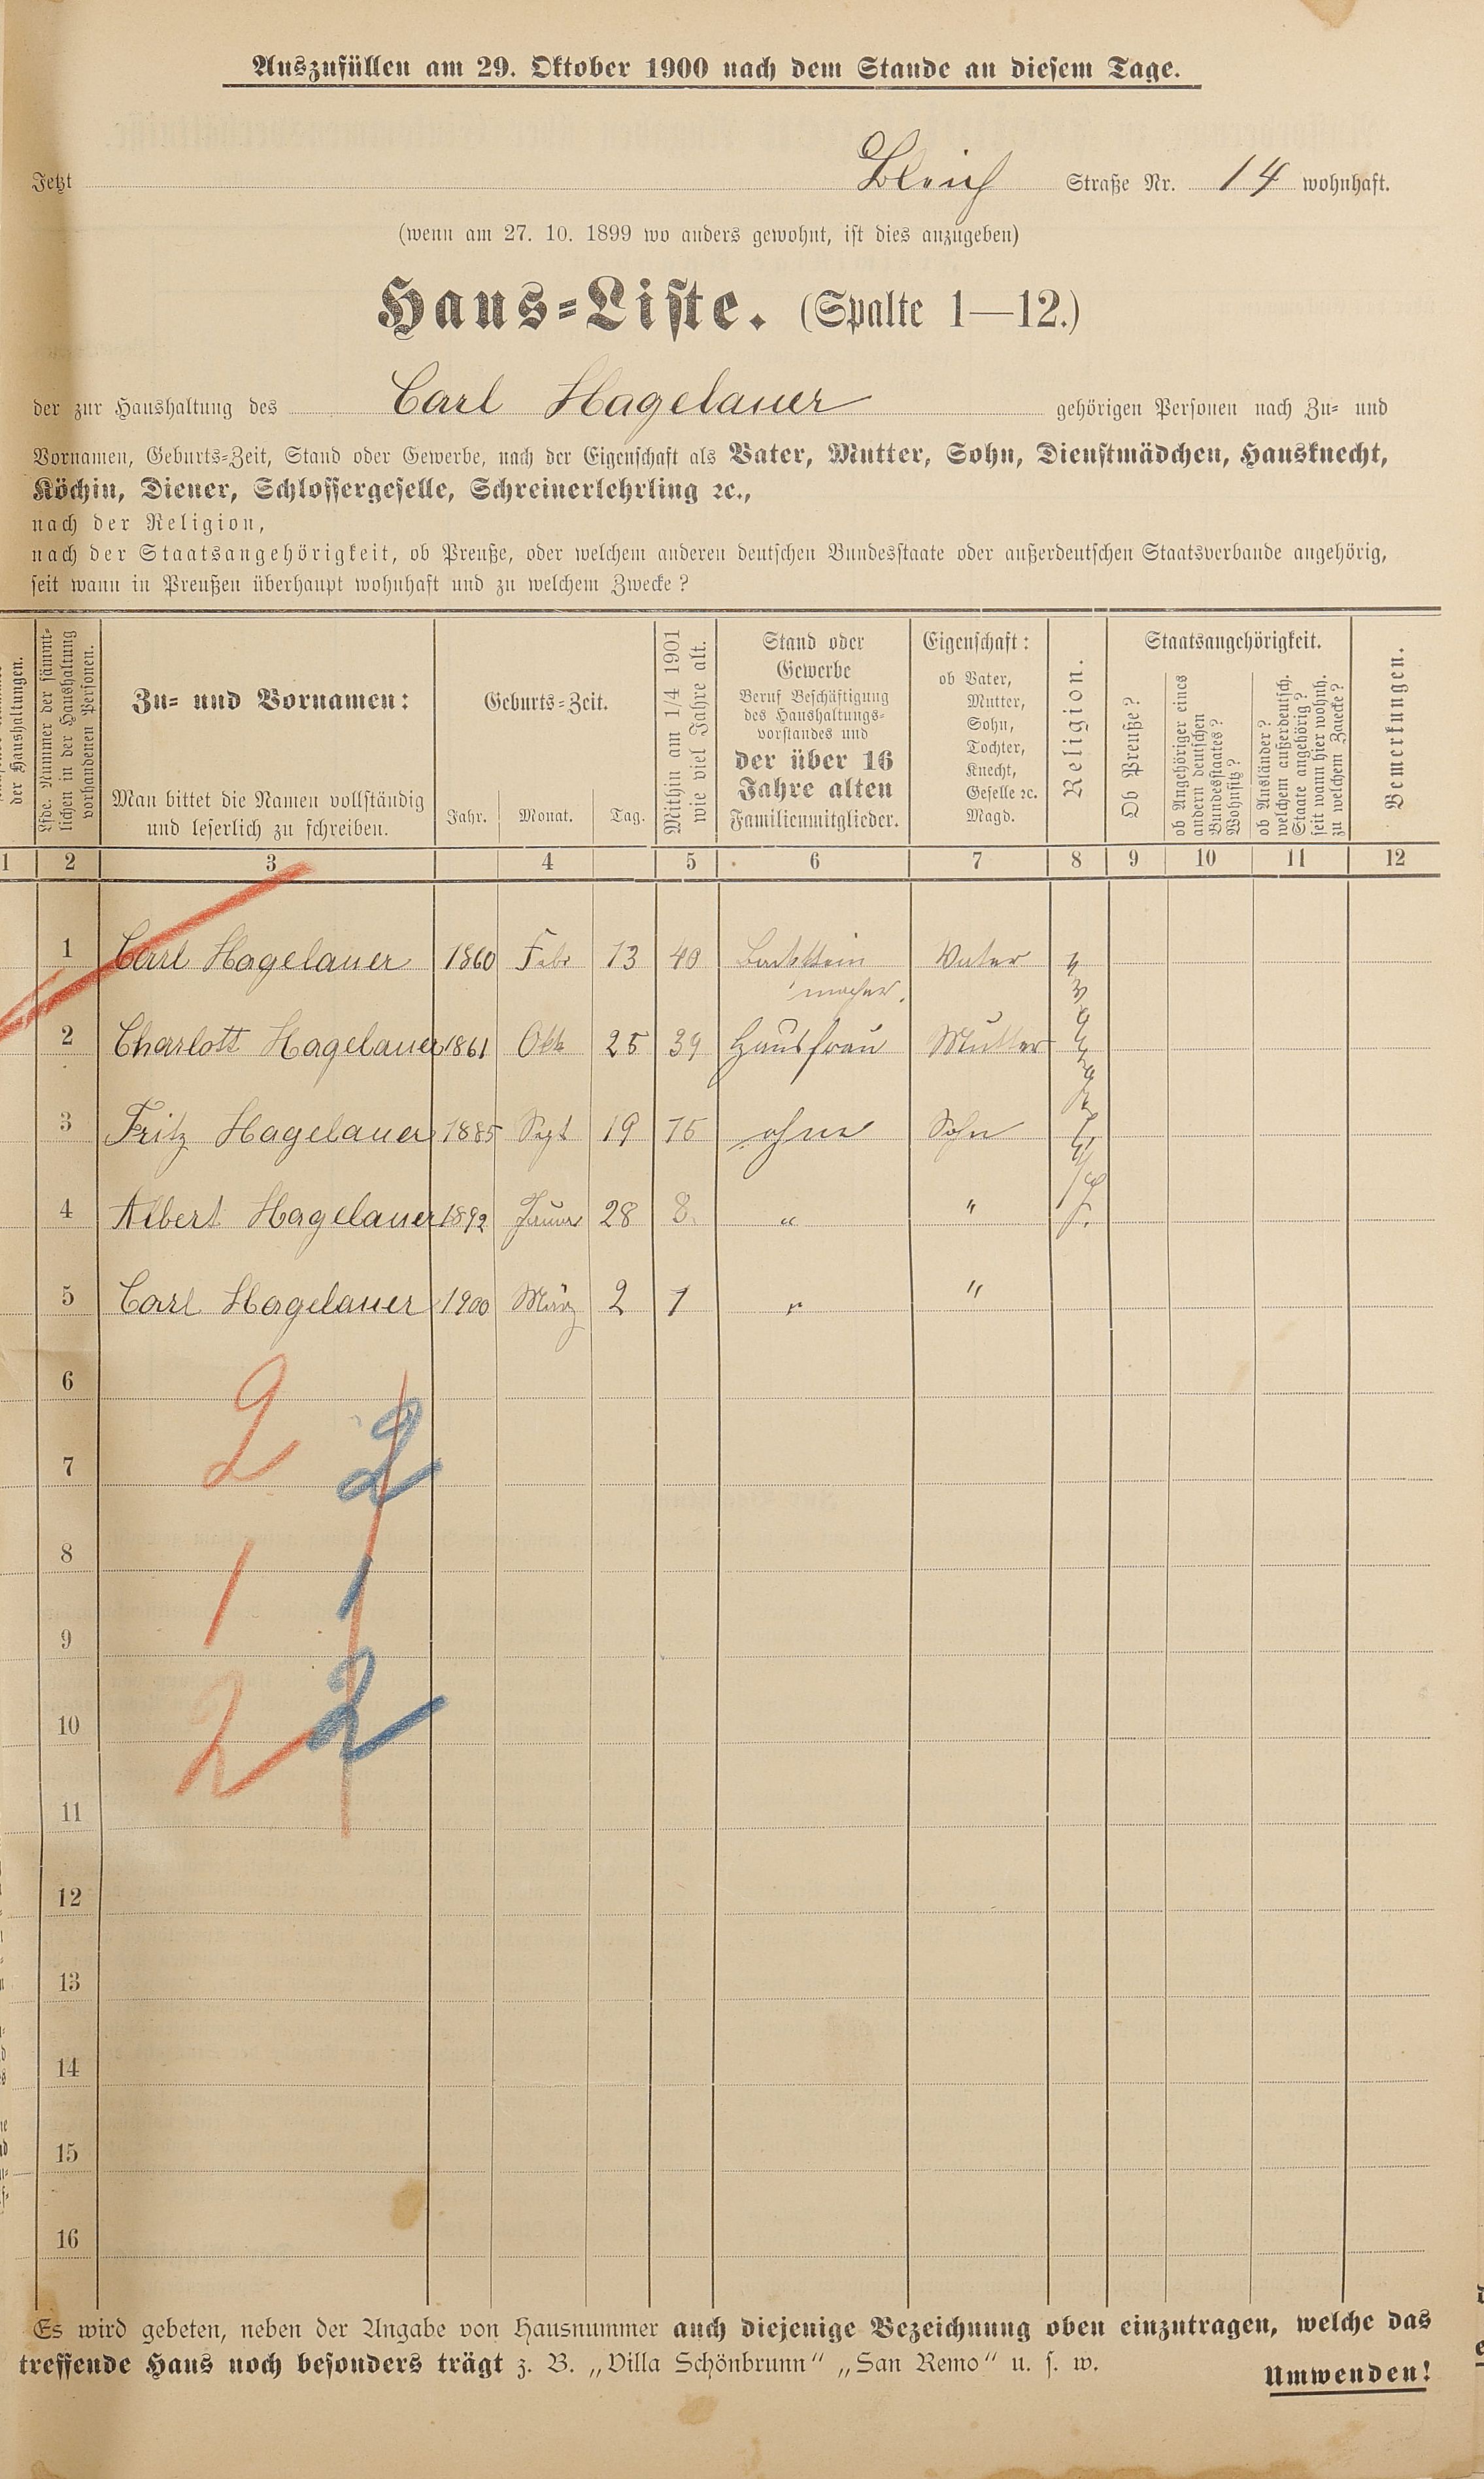 Auszufüllen am 29. Oktober 1900 nach dem Stande an diesem Tage.
Jetzt Bleich Straße Nr. 14 wohnhaft.
(wenn am 27. 10. 1899 wo anders gewohnt, ist dies anzugeben)
Haus-Liste. (Spalte 1—12.)
der zur Haushaltung des Carl Hagelauer gehörigen Personen nach Zu- und
Vornamen, Geburts-Zeit, Stand oder Gewerbe, nach der Eigenschaft als Vater, Mutter, Sohn, Dienstmädchen, Hausknecht,
Köchin, Diener, Schlossergeselle, Schreinerlehrling ꝛc.,
nach der Religion,
nach der Staatsangehörigkeit, ob Preuße, oder welchem anderen deutschen Bundesstaate oder außerdeutschen Staatsverbande angehörig,
seit wann in Preußen überhaupt wohnhaft und zu welchem Zwecke?
der Haushaltungen.
Lfde. Nummer der sämmt-
lichen in der Haushaltung
vorhandenen Personen.
Zu- und Vornamen:
Man bittet die Namen vollständig
und leserlich zu schreiben.
Geburts-Zeit.
Jahr. Monat. Tag.
Mithin am 1/4 1901
wie viel Jahre alt.
Stand oder
Gewerbe
Beruf Beschäftigung
des Haushaltungs-
vorstandes und
der über 16
Jahre alten
Familienmitglieder.
Eigenschaft:
ob Vater,
Mutter,
Sohn,
Tochter,
Knecht,
Geselle ꝛc.
Magd.
Religion.
Staatsangehörigkeit.
Ob Preuße?
ob Angehöriger eines
andern deutschen
Bundesstaates?
Wohnsitz?
ob Ausländer?
welchem außerdeutsch.
Staate angehörig?
seit wann hier wohnh.
zu welchem Zwecke?
Bemerkungen.
1 2 3 4 5 6 7 8 9 10 11 12
1 Carl Hagelauer 1860 Febr 13 40 Backstein Vater
macher.
2 Charlott Hagelauer 1861 Okt 25 39 Hausfrau Mutter
3 Fritz Hagelauer 1885 Sept 19 15 ohne Sohn
4 Albert Hagelauer 1892 Januar 28 8. " "
5 Carl Hagelauer 1900 März 2 1 " "
6
2 2
7
8
1 1
9
10
2 2
11
12
13
14
15
16
Es wird gebeten, neben der Angabe von Hausnummer auch diejenige Bezeichnung oben einzutragen, welche das
treffende Haus noch besonders trägt z. B. „Villa Schönbrunn“ „San Remo“ u. s. w.
Umwenden!